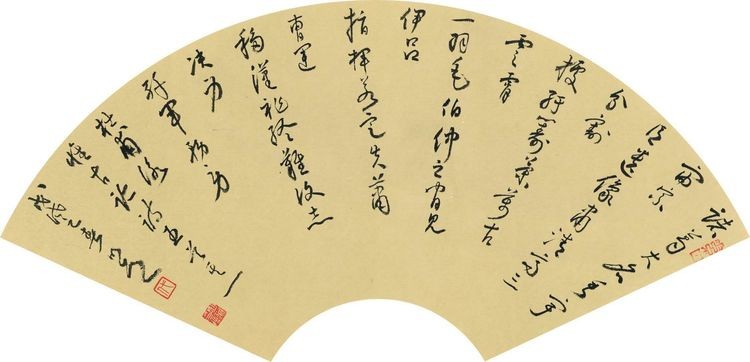 諸葛大名垂宇
宙宗
臣遺像肅清高三
分割
據紆籌策萬古
雲霄
一羽毛伯仲之間見
伊呂
指揮若定失蕭
曹運
移漢祚終難復志
決身
殲軍務勞
杜甫詠
懷古跡詩五首之一